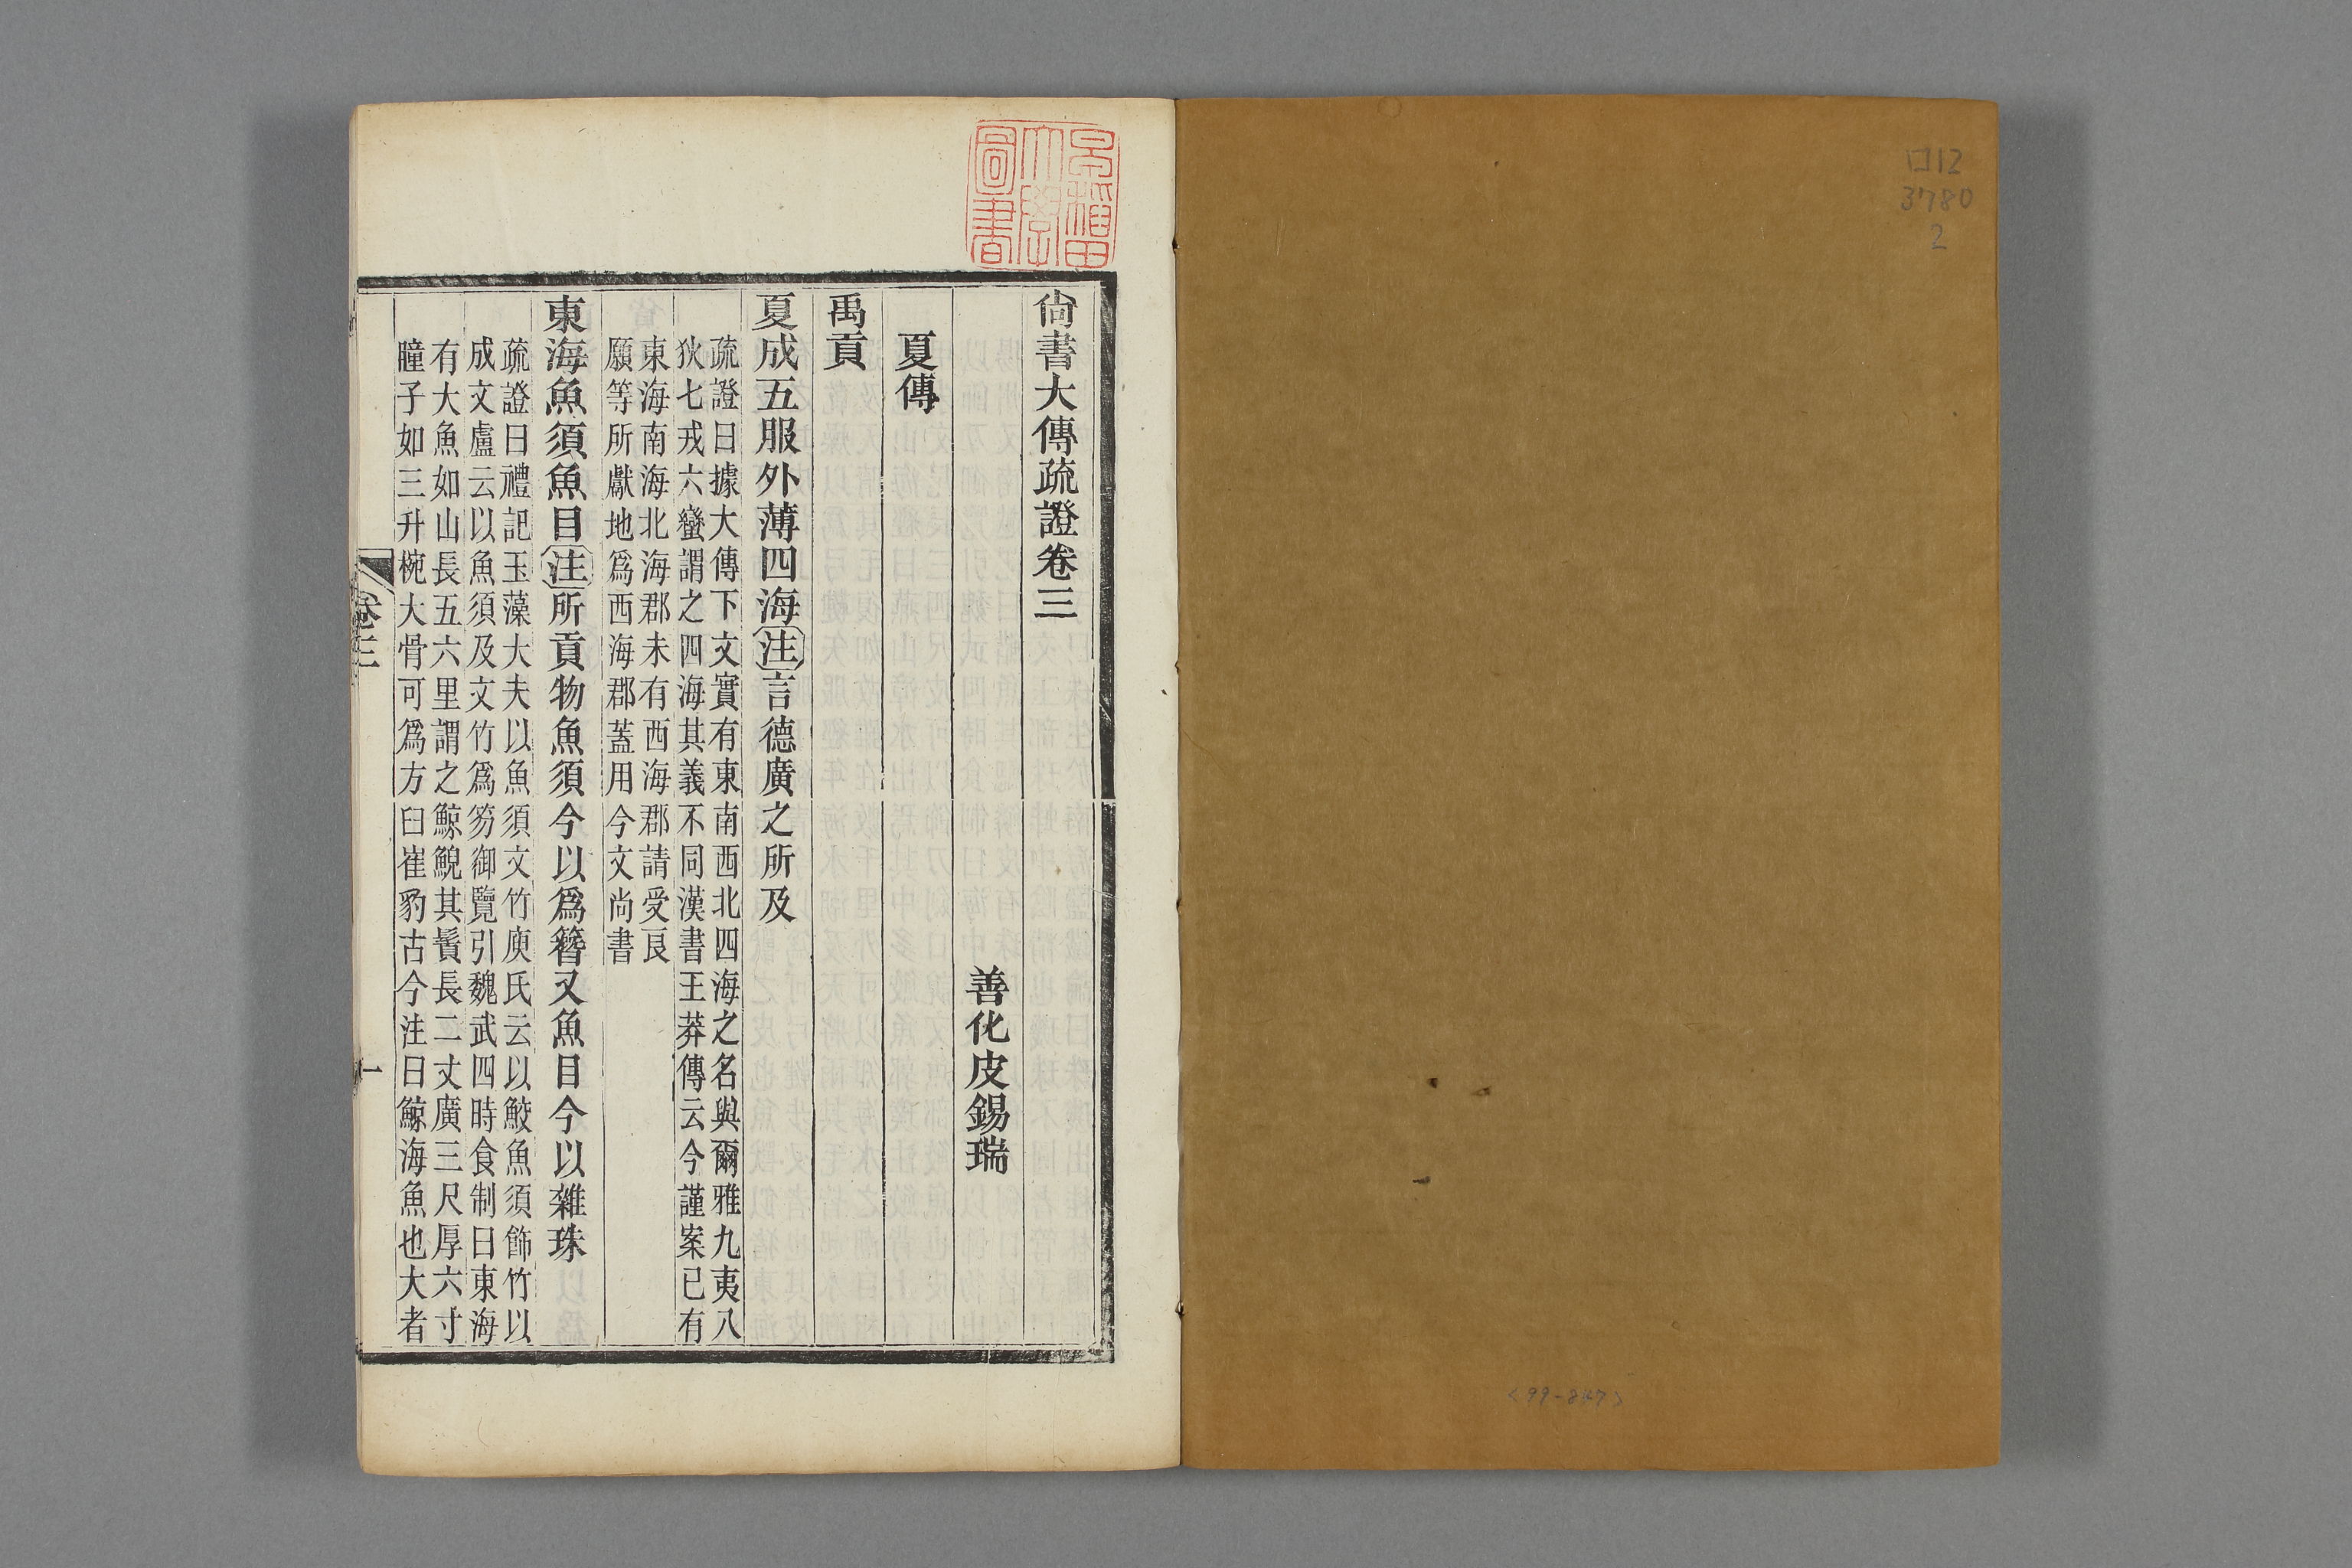 口12
3780
2
<99-247>
早稲田
大學
圖書
尙書大傳疏證卷三
善化皮錫瑞
夏傳
禹貢
夏成五服外薄四海注言德廣之所及
疏證曰據大傳下文實有東南西北四海之名與爾雅九夷八
狄七戎六蠻謂之四海其義不同漢書王莽傳云今謹案已有
東海南海北海郡未有西海郡請受良
願等所獻地爲西海郡蓋用今文尚書
東海魚須魚目注所貢物魚須今以爲簪又魚目今以雜珠
疏證曰禮記玉藻大夫以魚須文竹庾氏云以鮫魚須飾竹以
成文盧云以魚須及文竹爲笏御覽引魏武四時食制曰東海
有大魚如山長五六里謂之鯨鯢其鬚長二丈廣三尺厚六寸
瞳子如三升椀大骨可爲方臼崔豹古今注曰鯨海魚也大者
卷三
一